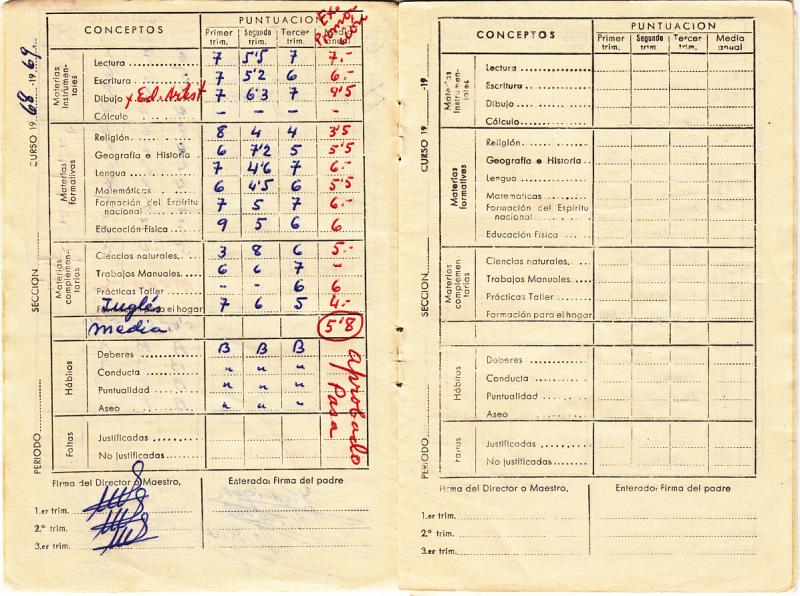 CURSO 19 68 -19 69
SECCION
PERIODO
CONCEPTOS PUNTUACION
Primer trim. Segundo trim. Tercer trim. Media anual
Materias instrumentales
Lectura 7 5'5 7 7.-
Escritura 7 5'2 6 6.-
Dibujo y Ed. Artist 7 6'3 7 4'5
Cálculo - - - -
Materias formativas
Religión 8 4 4 3'5
Geografía e Historia 6 7'2 5 5'5
Lengua 7 4'6 7 6.-
Matemáticas 6 4'5 6 5'5
Formación del Espíritu
nacional 7 5 7 6.-
Educación Física 9 5 6 6
Materias complementarias
Ciencias naturales 3 8 6 5.-
Trabajos Manuales 6 6 7 -
Prácticas Taller - - 6 6
Inglés
Formación para el hogar 7 6 5 4.-
Media 5'8
Hábitos
Deberes B B B
Conducta " " "
Puntualidad " " "
Aseo " " "
aprobado
Pasa
Faltas
Justificadas
No justificadas
Firma del Director o Maestro, Enterado: Firma del padre
1.er trim.
2.º trim.
3.er trim.
CURSO 19 -19
SECCION
PERIODO
CONCEPTOS PUNTUACION
Primer trim. Segundo trim. Tercer trim. Media anual
Materias instrumentales
Lectura
Escritura
Dibujo
Cálculo
Materias formativas
Religión
Geografía e Historia
Lengua
Matematicas
Formación del Espíritu
nacional
Educación Física
Materias complementarias
Ciencias naturales
Trabajos Manuales
Prácticas Taller
Formación para el hogar
Hábitos
Deberes
Conducta
Puntualidad
Aseo
Faltas
Justificadas
No justificadas
Firma del Director o Maestro, Enterado: Firma del padre
1.er trim.
2.º trim.
3.er trim.